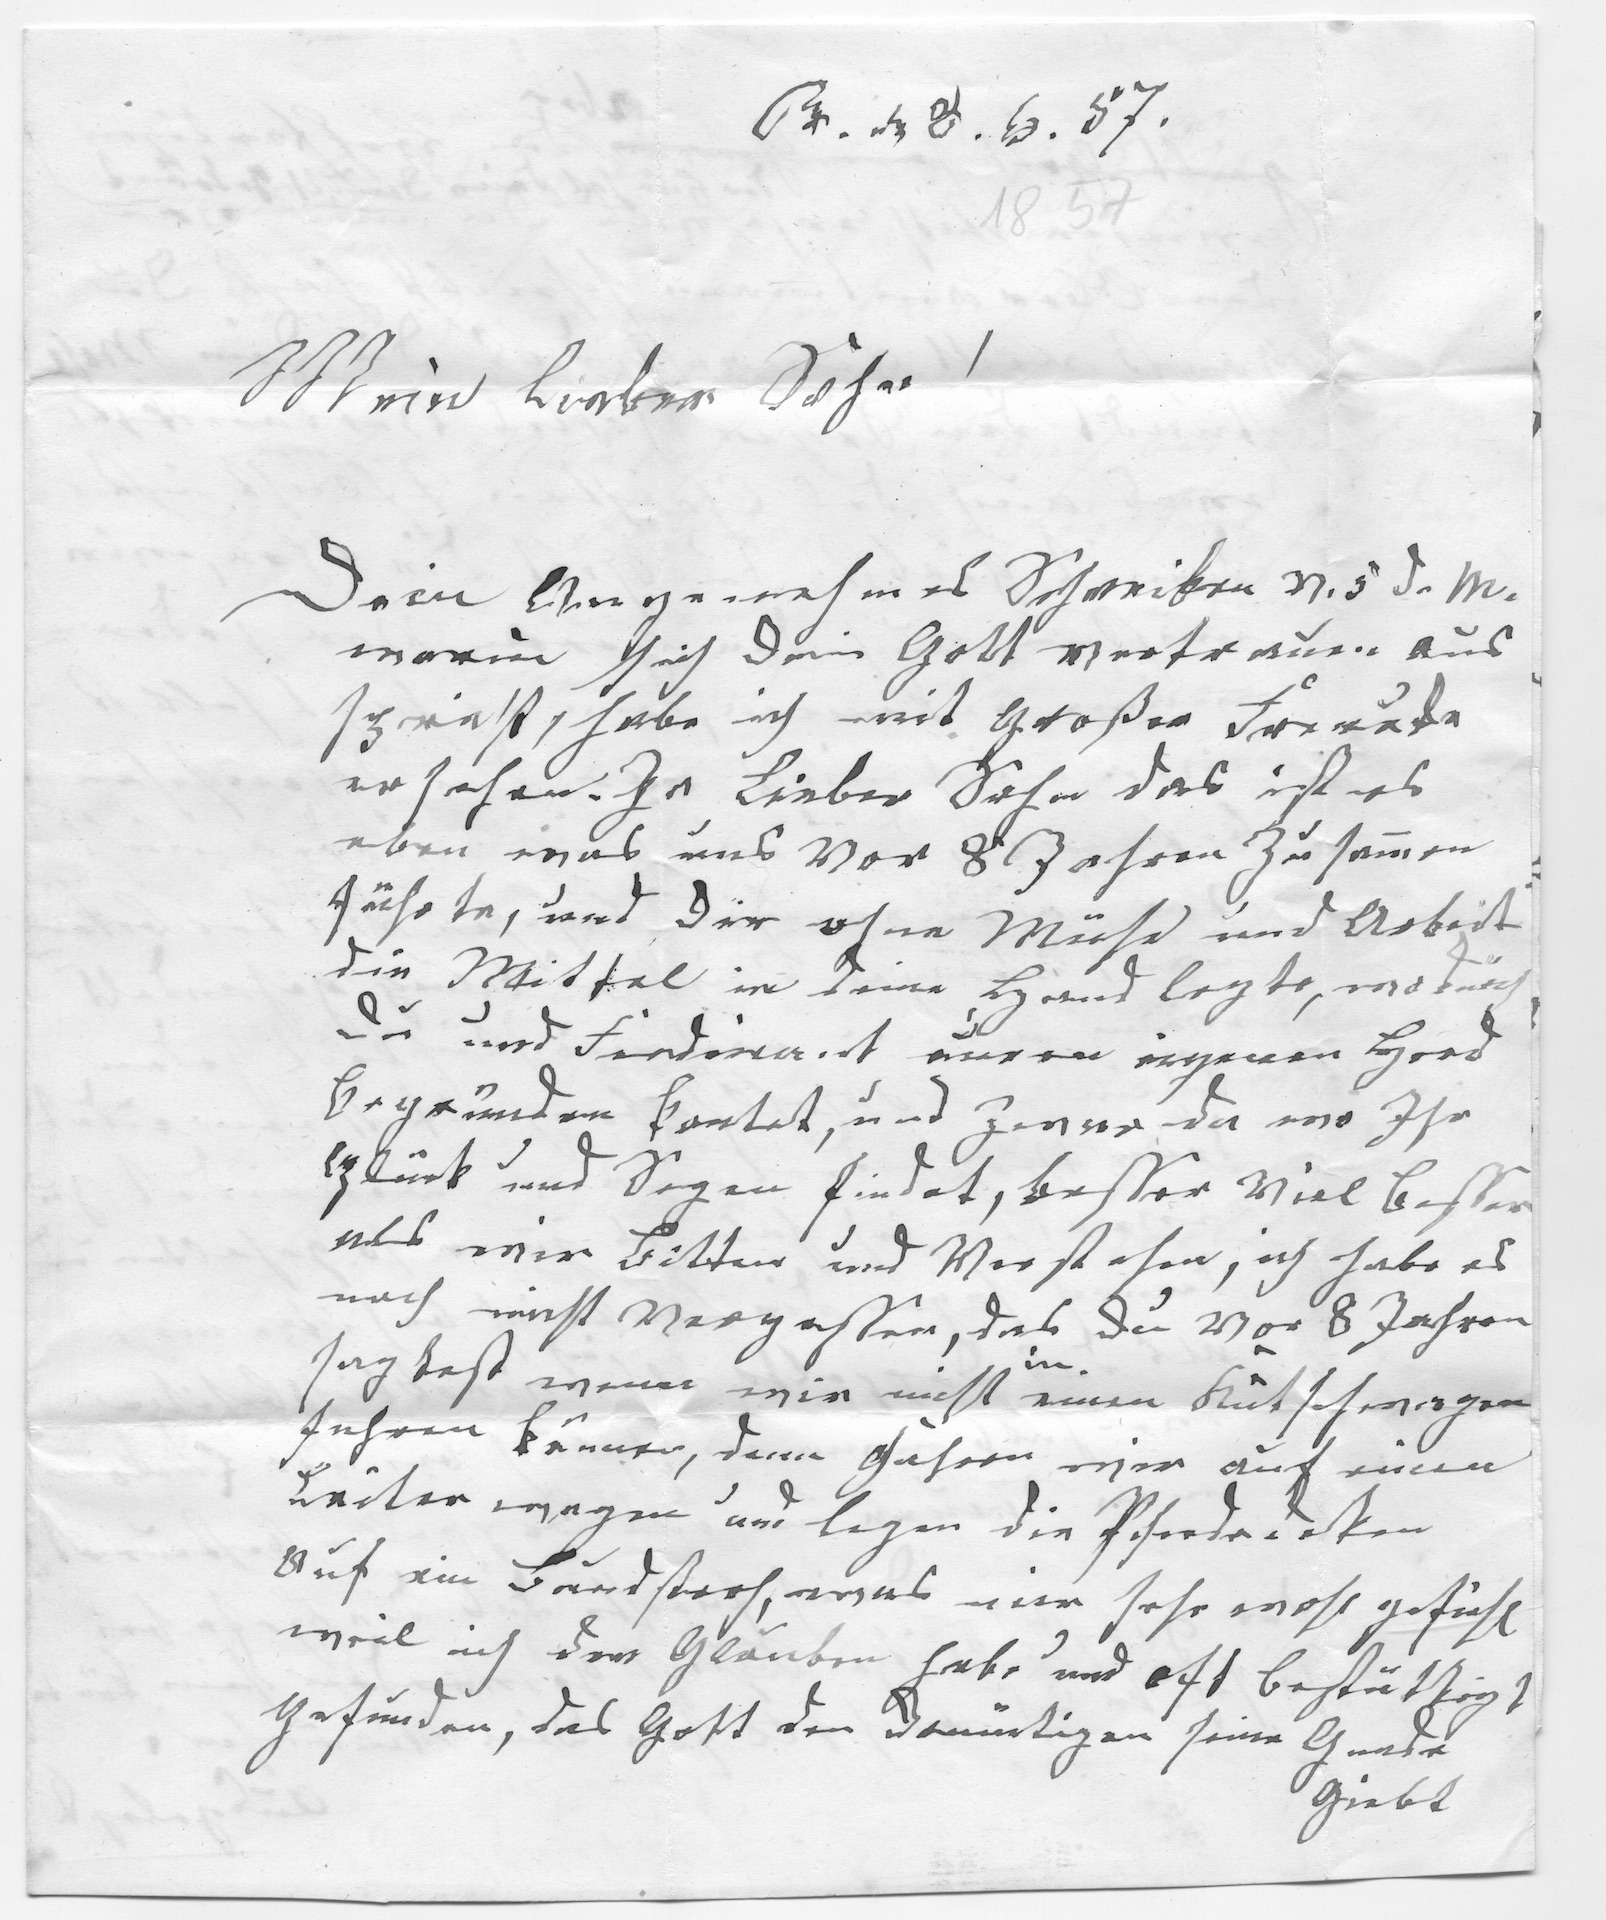 d 8. 6. 57.
18 57
Mein Lieber Sohn!
Dein Angenehmes Schreiben v. 5 d. M.
worin sich Dein Gott vertrauen aus
spricht, habe ich mit Großer Freude
ersehen. Ja Lieber Sohn das ist es
eben was uns Vor 8 Jahren Zusam̅en
führte, und Dir ohne Mühe und Arbeit
die Mittel in deine Hand legte, wodurch
Du und Ferdinant euren eigenen Herd
Begründen kontet, und Zwar da wo Ihr
Glück und Segen findet, besser Viel Besser
als wir Bitten und Verstehen, ich habe es
noch nicht Vergessen, das Du Vor 8 Jahren
sagtest wenn wir nicht in einen Kutschwagen
fahren können, dann fahren wir auf einen
Leiter wagen und legen die Pferdedecken
Auf ein Bundstroh, was mir sehr wohl gefiehl
weil ich den Glauben habe und oft Bestättigt
Gefunden, das Gott den Demütigen seine Gnade
Giebt